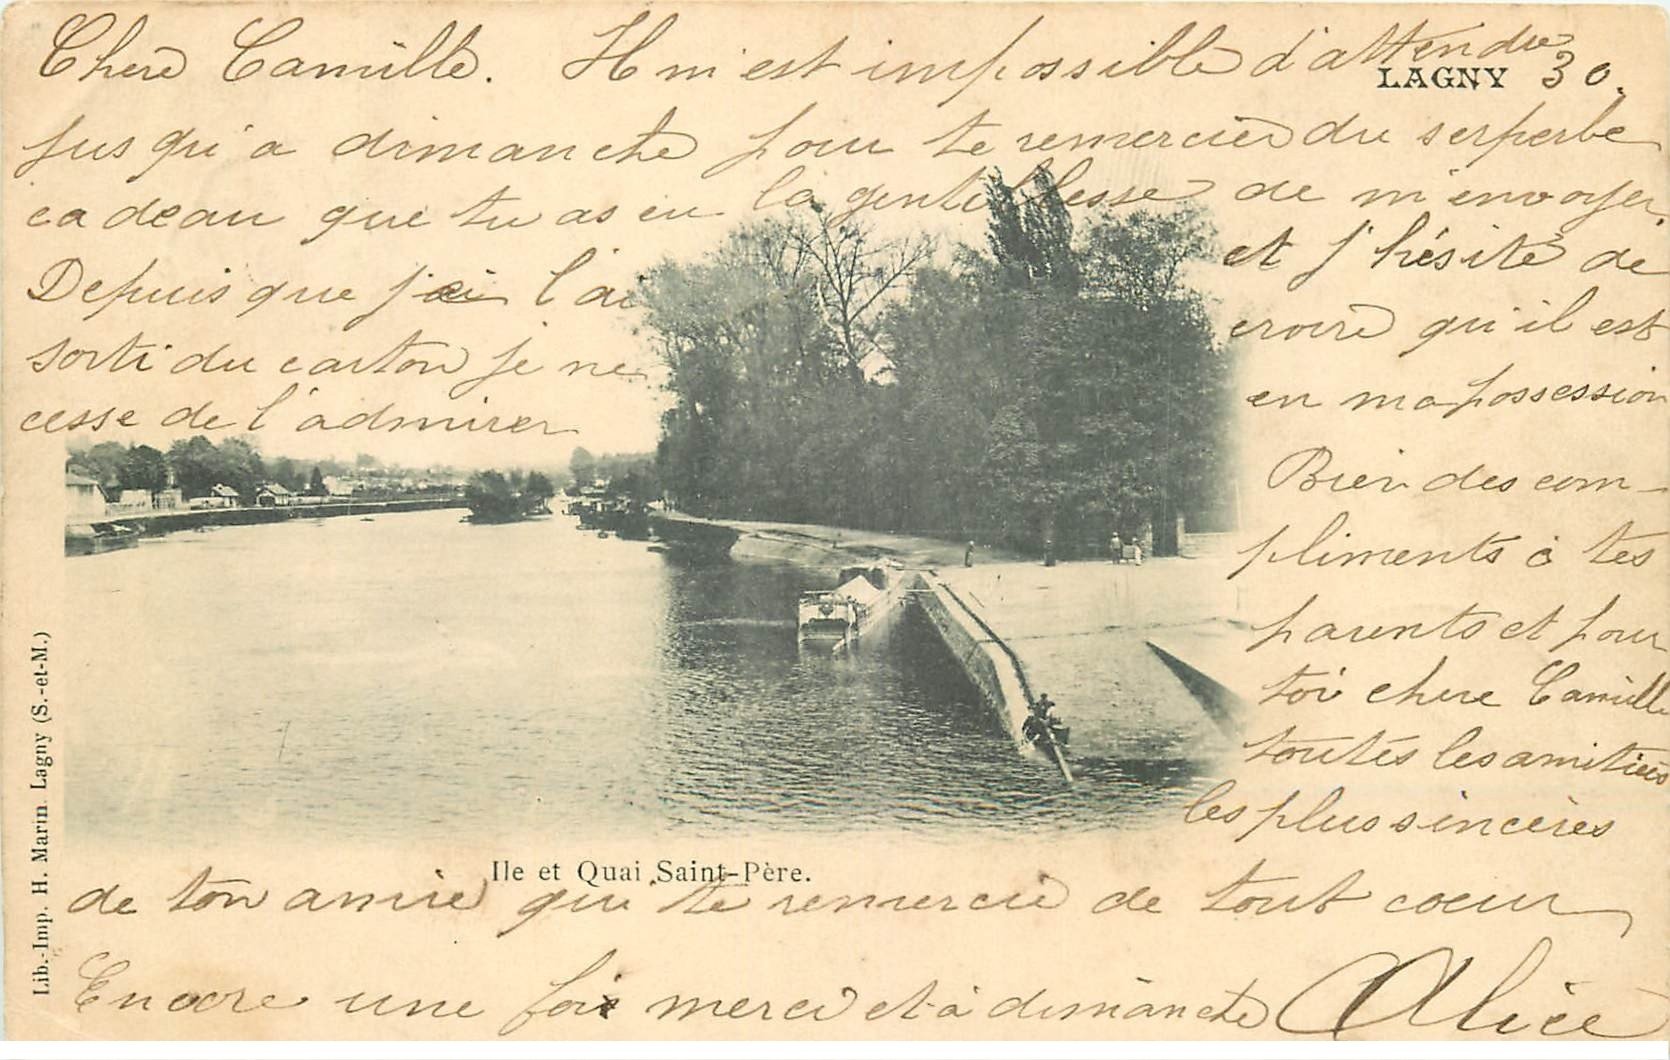 Chere Camille. Il m'est impossible d'attendre
LAGNY 30.
jusqu'a dimanche pour te remercier du serperbe
cadeau que tu as eu la gentillesse de m'envoyer.
Depuis que j'ai l'ai
sorti du carton je ne
cesse de l'admirer
et j'hésite de
croire qu'il est
en ma possession
Bien des com-
pliments à tes
parents et pour
toi chere Camille
toutes les amitiés
les plus sincères
Ile et Quai Saint-Père.
de ton amie qui te remercie de tout coeur
Encore une fois merci et à dimanche Alice
Lib.-Imp. H. Marin. Lagny (S.-et-M.)